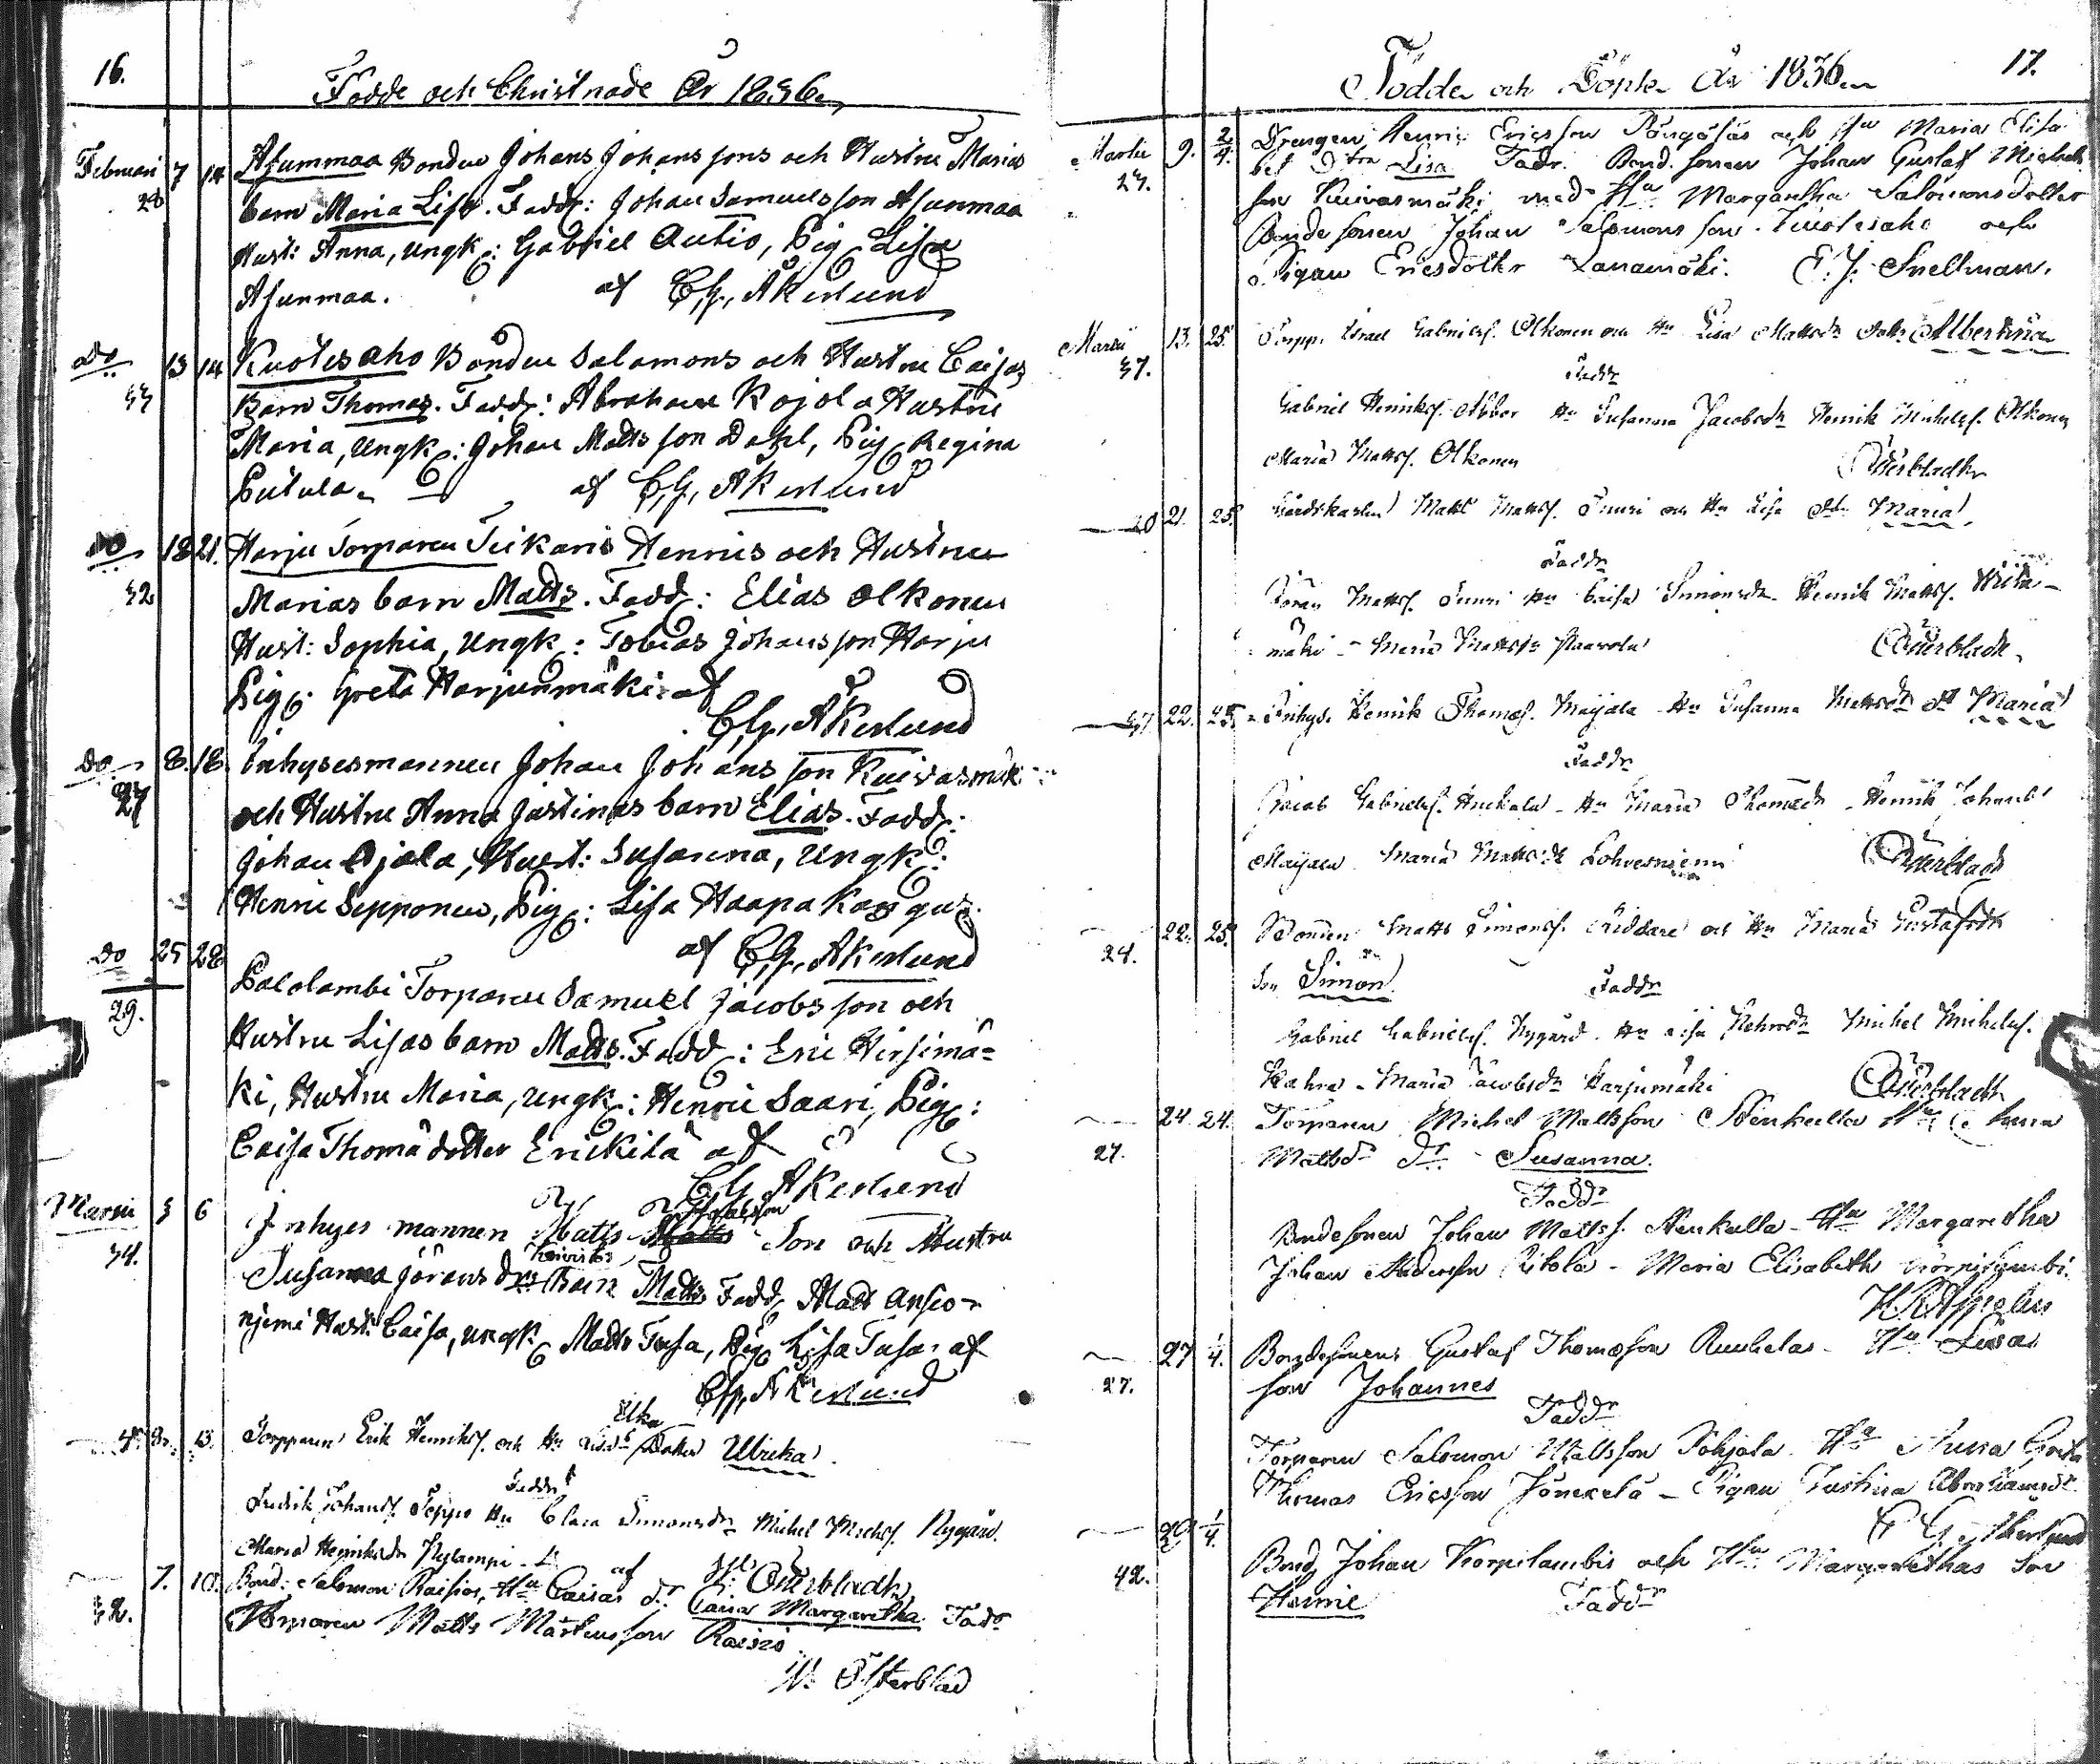 16.
Födde och Christnade År 1836.
Februari 7 14 Asunmaa Bonden Johans Johanssons och Hustru Marias
28 barn Maria Lisa. Fadd: Johan Samuelsson Asunmaa
Hust: Anna, Ungk: Gabriel Autio, Pig Lisa
Asunmaa. af C.G. Åkerlund
Do 13 14 Kuotesaho Bonden Salamons och Hustru Caisas
Barn Thomas. Fadd: Abraham Kojola Hustru
Maria, Ungk: Johan Mattsson Dahl, Pig Regina
af C.G. Åkerlund
Do 18 21. Harju Torparen Tuikaris Henris och Hustru
32 Marias barn Matts. Fadd: Elias Olkonen
Hust: Sophia, Ungk: Tobias Johansson Harju
Pig: Greta Harjunmäki af
C.G. Åkerlund
Do 8. 18. Inhysesmannen Johan Johansson Kuivasmäki
27 och Hustru Anna Justinas barn Elias. Fadd:
Johan Ojala, Hust: Susanna, Ungk:
Henric Sepponen, Pig: Lisa Haapakangas
af C.G. Åkerlund
Do 25 28 Palolambi Torparen Samuel Jacobsson och
29. Hustru Lisas barn Matts. Fadd: Eric Hirsimä-
ki, Hustru Maria, Ungk: Henric Saari, Pig:
Caisa Thomädotter Erickilä af
C.G. Åkerlund
Martii 3 6 Inhyses mannen Matts Matts son och Hustru
34. Susanna Jörans dr Barn Matts Fadd Matts Ansio-
njemi Hust: Caisa, Ungk: Matts Tusa, Pig Lisa Tusa af
C.G. Åkerlund
8. 13. Torpparen Erik Henriks. och Hu Dotter Ulrika
Faddr
Fredrik Johans. Seppo Hu Clara Simonsdr Michel Michels. Nygård.
Maria Henriksdr Kylampi af Österbladh
7. 10. Bond: Salomon Raisios, Hu Caisas dr Caisa Margaretha Fadr
32. Torparen Matts Mårtensson Raisio
N. Österblad
17.
Födde och Döpte År 1836
Martii 9. 2/4. Drengen Henric Ericsson Pöngäsäs och Hu Maria Elisa
bet Dtra Lisa Fadr. Bond. sonen Johan Gustaf Michels
son Kuivasmäki med Hu Margaretha Salomonsdotter
Bondesonen Johan Salomonsson Kuotesaho och
Pigan Ericsdotter Lanamäki. E.J. Snellman.
Martii 13. 25. Torpp. Israel Gabriels. Olkonen och Hu Lisa Mattsdr dotter Albertina
37.
Faddr
Gabriel Henriks. Hu Susanna Jacobsdr Henrik Michels. Olkonen
Maria Matts. Olkonen Österbladh
21. 25. Gårdskarlen Matts Matts. Suuri och Hu Lisa dtr Maria
Faddr
Göran Matts. Suuri Hu Caisa Simonsdr Henrik Matts.
mäki Maria Mattsdr Paavola Österbladh
22. 25. Inhys. Henrik Thomas. Majala Hu Susanna Mattsdr dtr Maria
Faddr
Jacob Gabriels. Hu Maria Thomædr Henrik Johans.
Majala Maria Mattsdr Lohvesniemi Österbladh
22. 25. Bonden Matts Simons. Riddare och Hu Maria Gustafsdtr
24. Son Simon
Faddr
Gabriel Gabriels. Nygård Hu Michel Michels.
Maria Jacobsdr Harjumäki Österbladh
24. 24. Torparen Michel Mattsson Stenkulla Hu Anna
27. Mattsdr Dr Susanna.
Faddr
Bondesonen Johan Mattss. Stenkulla Hu Margaretha
Johan Andersson Ritola - Maria Elisabeth Korpilambi.
27 1/4. Bondesonens Gustaf Thomasson Ruuhelas Hu Lisas
27. son Johannes
Faddr
Torparen Salomon Mattsson Pohjola Hu Anna Greta
Thomas Ericsson Jänckelä - Pigan Justina Abrahamsdr
C.G. Åkerlund
29 1/4. Bond Johan Korpilambis och Hu Margarethas son
42. Henric Faddr